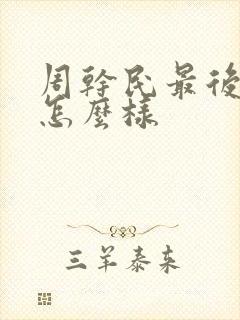 周幹民最後
怎麼樣
三羊泰来